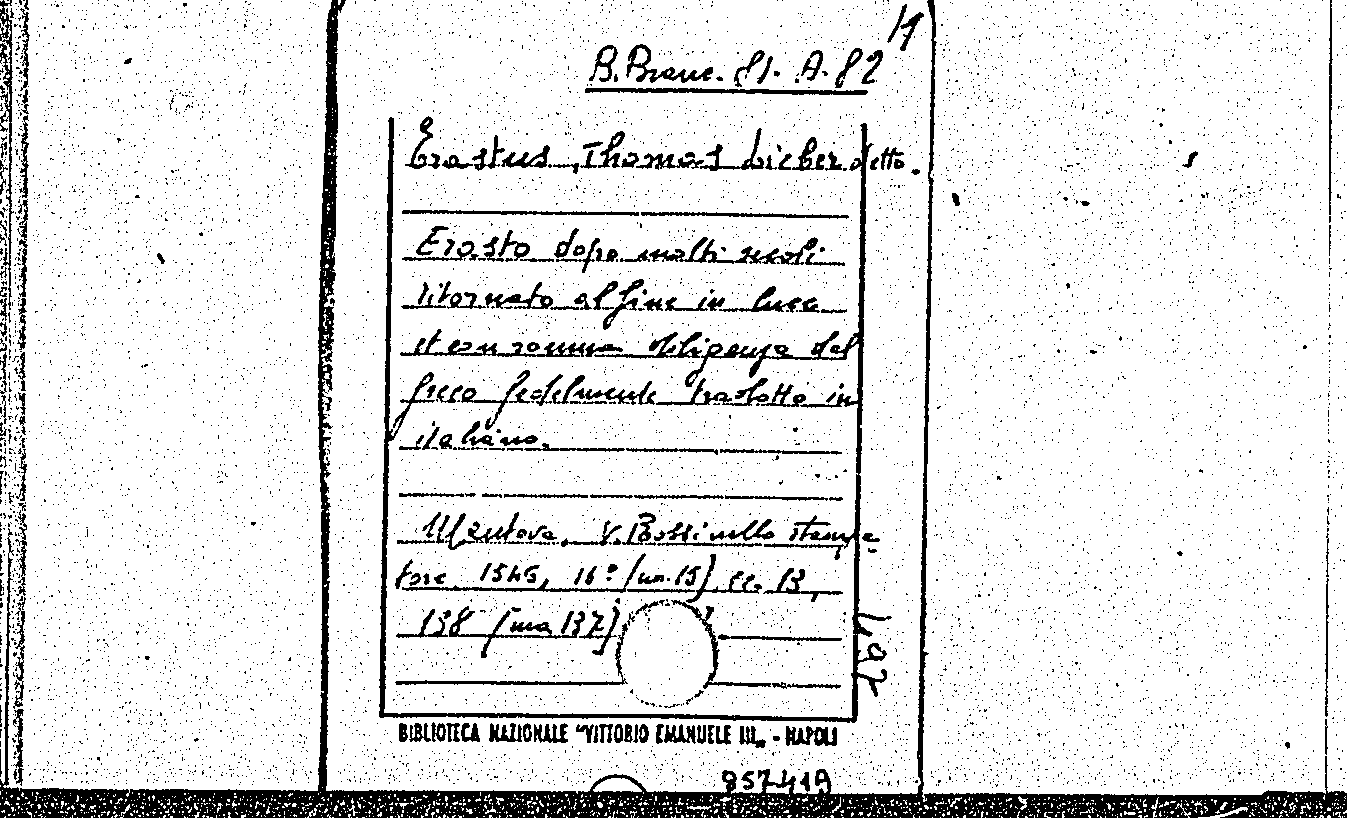 17
B. Branc. 81. A. 82
Erastus, Thomas Lieber detto.
Erasto dopo molti secoli
ritornato al fine in luce
et con somma diligenza dal
greco fedelmente tradotto in
italiano.
Mantova, V. Rossinello stampa
tore 1545, 16° (cm. 15) cc. 13,
138 (ma 137)
497
BIBLIOTECA NAZIONALE "VITTORIO EMANUELE III" - NAPOLI
857419